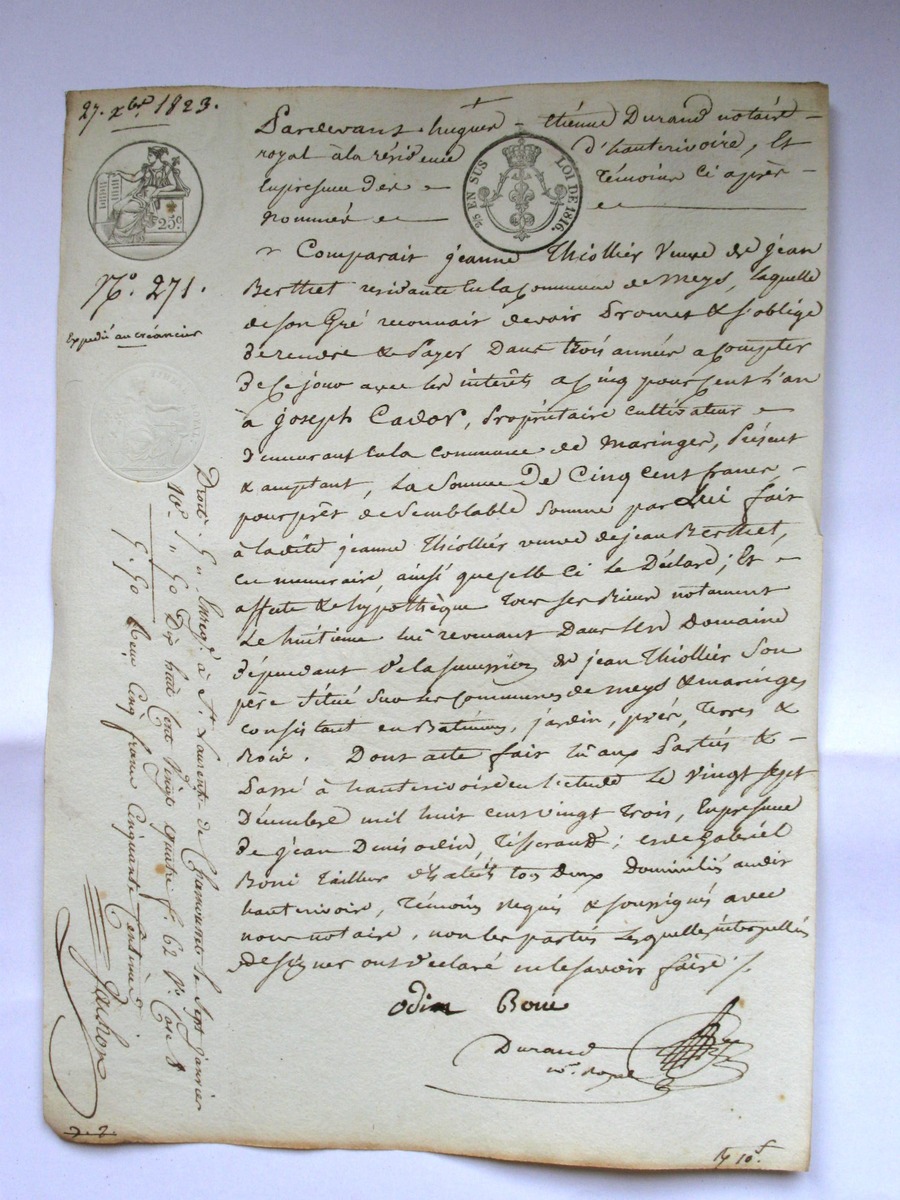 27. xbre 1823.
25c
No. 271.
Expédié au créancier
Pardevant hugues - étienne Durand notaire
royal à la résidence d'hauterivoire, Et
En presence des témoins Ci après
nommés
¼ EN SUS LOI DE 1816.
Comparait jeanne Thiollier veuve de jean
Berthet residante En la Commune de meys, laquelle
de son Gré reconnait devoir Promet & s'oblige
de rendre & Payer Dans trois années a Compter
de Ce jour avec les intérêts a Cinq pour Cent L'an
à joseph Cador, Propriétaire cultivateur
demeurant En la commune de maringes, Présent
& acceptant, La Somme De Cinq cent francs
pour prêt de Semblable Somme par Lui fait
à la dite jeanne Thiollier veuve de jean Berthet,
en numeraire ainsi que celle Ci le Déclare; Et
affecte & hypothèque tous ses Biens notament
Le huitième lui revenant Dans un Domaine
dépendant de la succession de jean Thiollier Son
père Situé Sur les Communes de meys & maringes
consistant en Batimens, jardin, prés, terres &
Bois. Dont acte fait lu aux Parties &
Passé à hauterivoire en l'etude Le vingt sept
Décembre mil huit cent vingt trois, En presence
de jean Denis odin, tisserand; et de Gabriel
Boni tailleur d'habits tous deux Domiciliés audit
hauterivoire, témoins requis & soussignés avec
nous notaire, non les parties Lesquelles interpellées
de signer ont déclaré ne le savoir faire
odin Boni
Durand
re. royal
Enregé. à St. Laurent de Chamousset le Sept janvier
Dix huit Cent vingt quatre f. 62 Ro. Case 8
Reçu Cinq francs Cinquante Centimes
Droit. 5
10e. " 50
5. 50